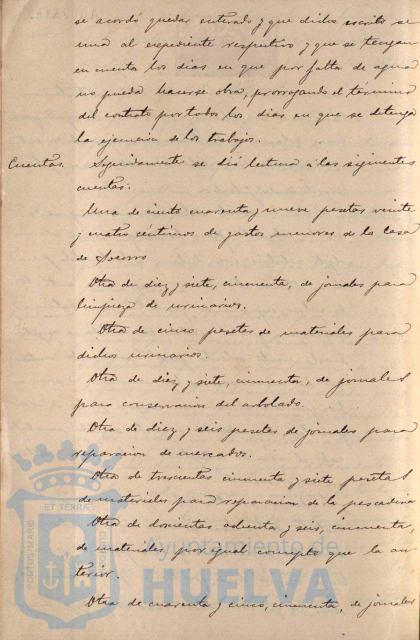 se acordó quedar enterado y que dicho escrito se
una al espediente respectivo y que se tengan
en cuenta los dias en que por falta de agua
no pueda hacerse obra, prorrogando el término
del contrato por todos los dias en que se detenga
la ejecucion de los trabajos.
Cuentas. Seguidamente se dió lectura á las siguientes
cuentas:
Una de ciento cuarenta y nueve pesetas veinte
y cuatro céntimos de gastos menores de la Casa
de Socorro
Otra de diez y siete, cincuenta, de jornales para
limpieza de urinarios.
Otra de cinco pesetas de materiales para
dichos urinarios.
Otra de diez y siete, cincuenta, de jornales
para conservacion del arbolado.
Otra de diez y seis pesetas de jornales para
reparacion de mercados.
Otra de trescientas cincuenta y siete pesetas
de materiales para reparacion de la pescaderia
Otra de doscientas ochenta y seis, cincuenta,
de materiales, por igual concepto que la an-
terior.
Otra de cuarenta y cinco, cincuenta, de jornales
PORTUS MARIS
ET TERRÆ
Ayuntamiento de
HUELVA